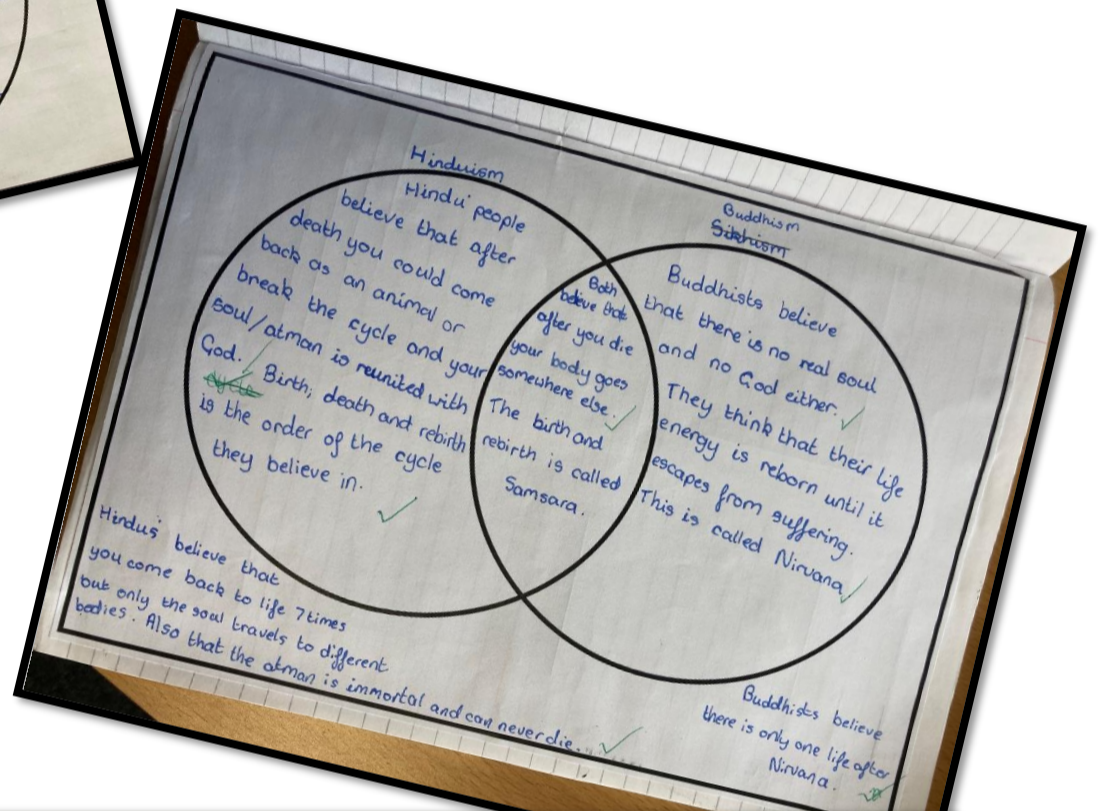 Hinduism
Hindu' people
believe that after
death you could come
back as an animal or
break the cycle and your
soul/atman is reunited with
God.
cycle Birth, death and rebirth
is the order of the cycle
they believe in.
Both
believe that
after you die
your body goes
somewhere else.
The birth and
rebirth is called
Samsara.
Buddhism
Sikhism
Buddhists believe
that there is no real soul
and no God either.
They think that their life
energy is reborn until it
escapes from suffering.
This is called Nirvana
Hindus' believe that
you come back to life 7 times
but only the soul travels to different
bodies. Also that the atman is immortal and can never die.
Buddhists believe
there is only one life after
Nirvana.